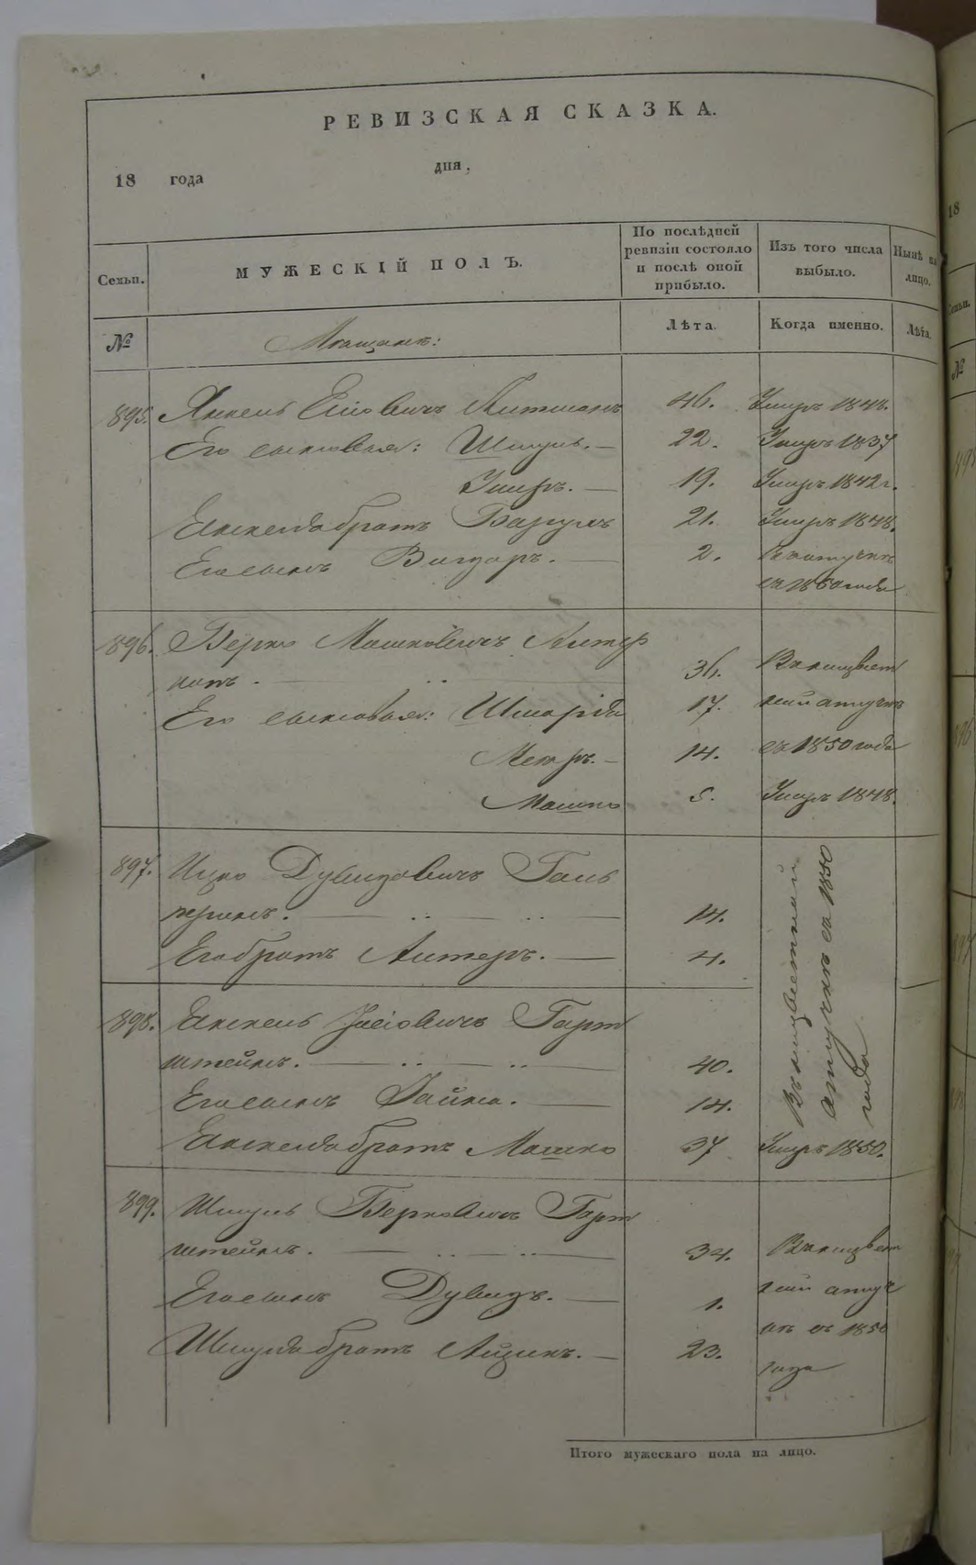 РЕВИЗСКАЯ СКАЗКА.
18 года дня,
Семьи. МУЖЕСКІЙ ПОЛЪ. По послѣдней ревизіи состояло и послѣ оной прибыло. Изъ того числа выбыло. Нынѣ на лицо.
№ Мѣщанъ: Лѣта. Когда именно. Лѣта.
895. Янкель Литманъ 46. Умеръ 1848.
Его сыновья: Шмуль. 22. Умеръ 1837
19. Умеръ 1842 г.
Янкеля братъ Барухъ 21. Умеръ 1848.
Его сынъ 2. въ отлучкѣ
съ 1850 года
896. Берко Мошковичъ
36. В неизвѣст
Его сыновья: 17. ной отлучкѣ
14. съ 1850 года
Мошко 5. Умеръ 1848.
897. Ицко Дувидовичъ Галь
перинъ. 14.
Его братъ 4.
Въ неизвѣстной
отлучкѣ съ 1850
года
898. Янкель Гарт
штейнъ. 40.
Его сынъ 14.
Янкеля братъ Мошко 37 Умеръ 1850.
899. Шмуль Берковичъ Гарт
штейнъ. 34. В неизвѣст
Его сынъ Дувидъ. 1. ной отлуч
Шмуля братъ Айзикъ. 23. кѣ съ 1850
года
Итого мужескаго пола на лицо.
18